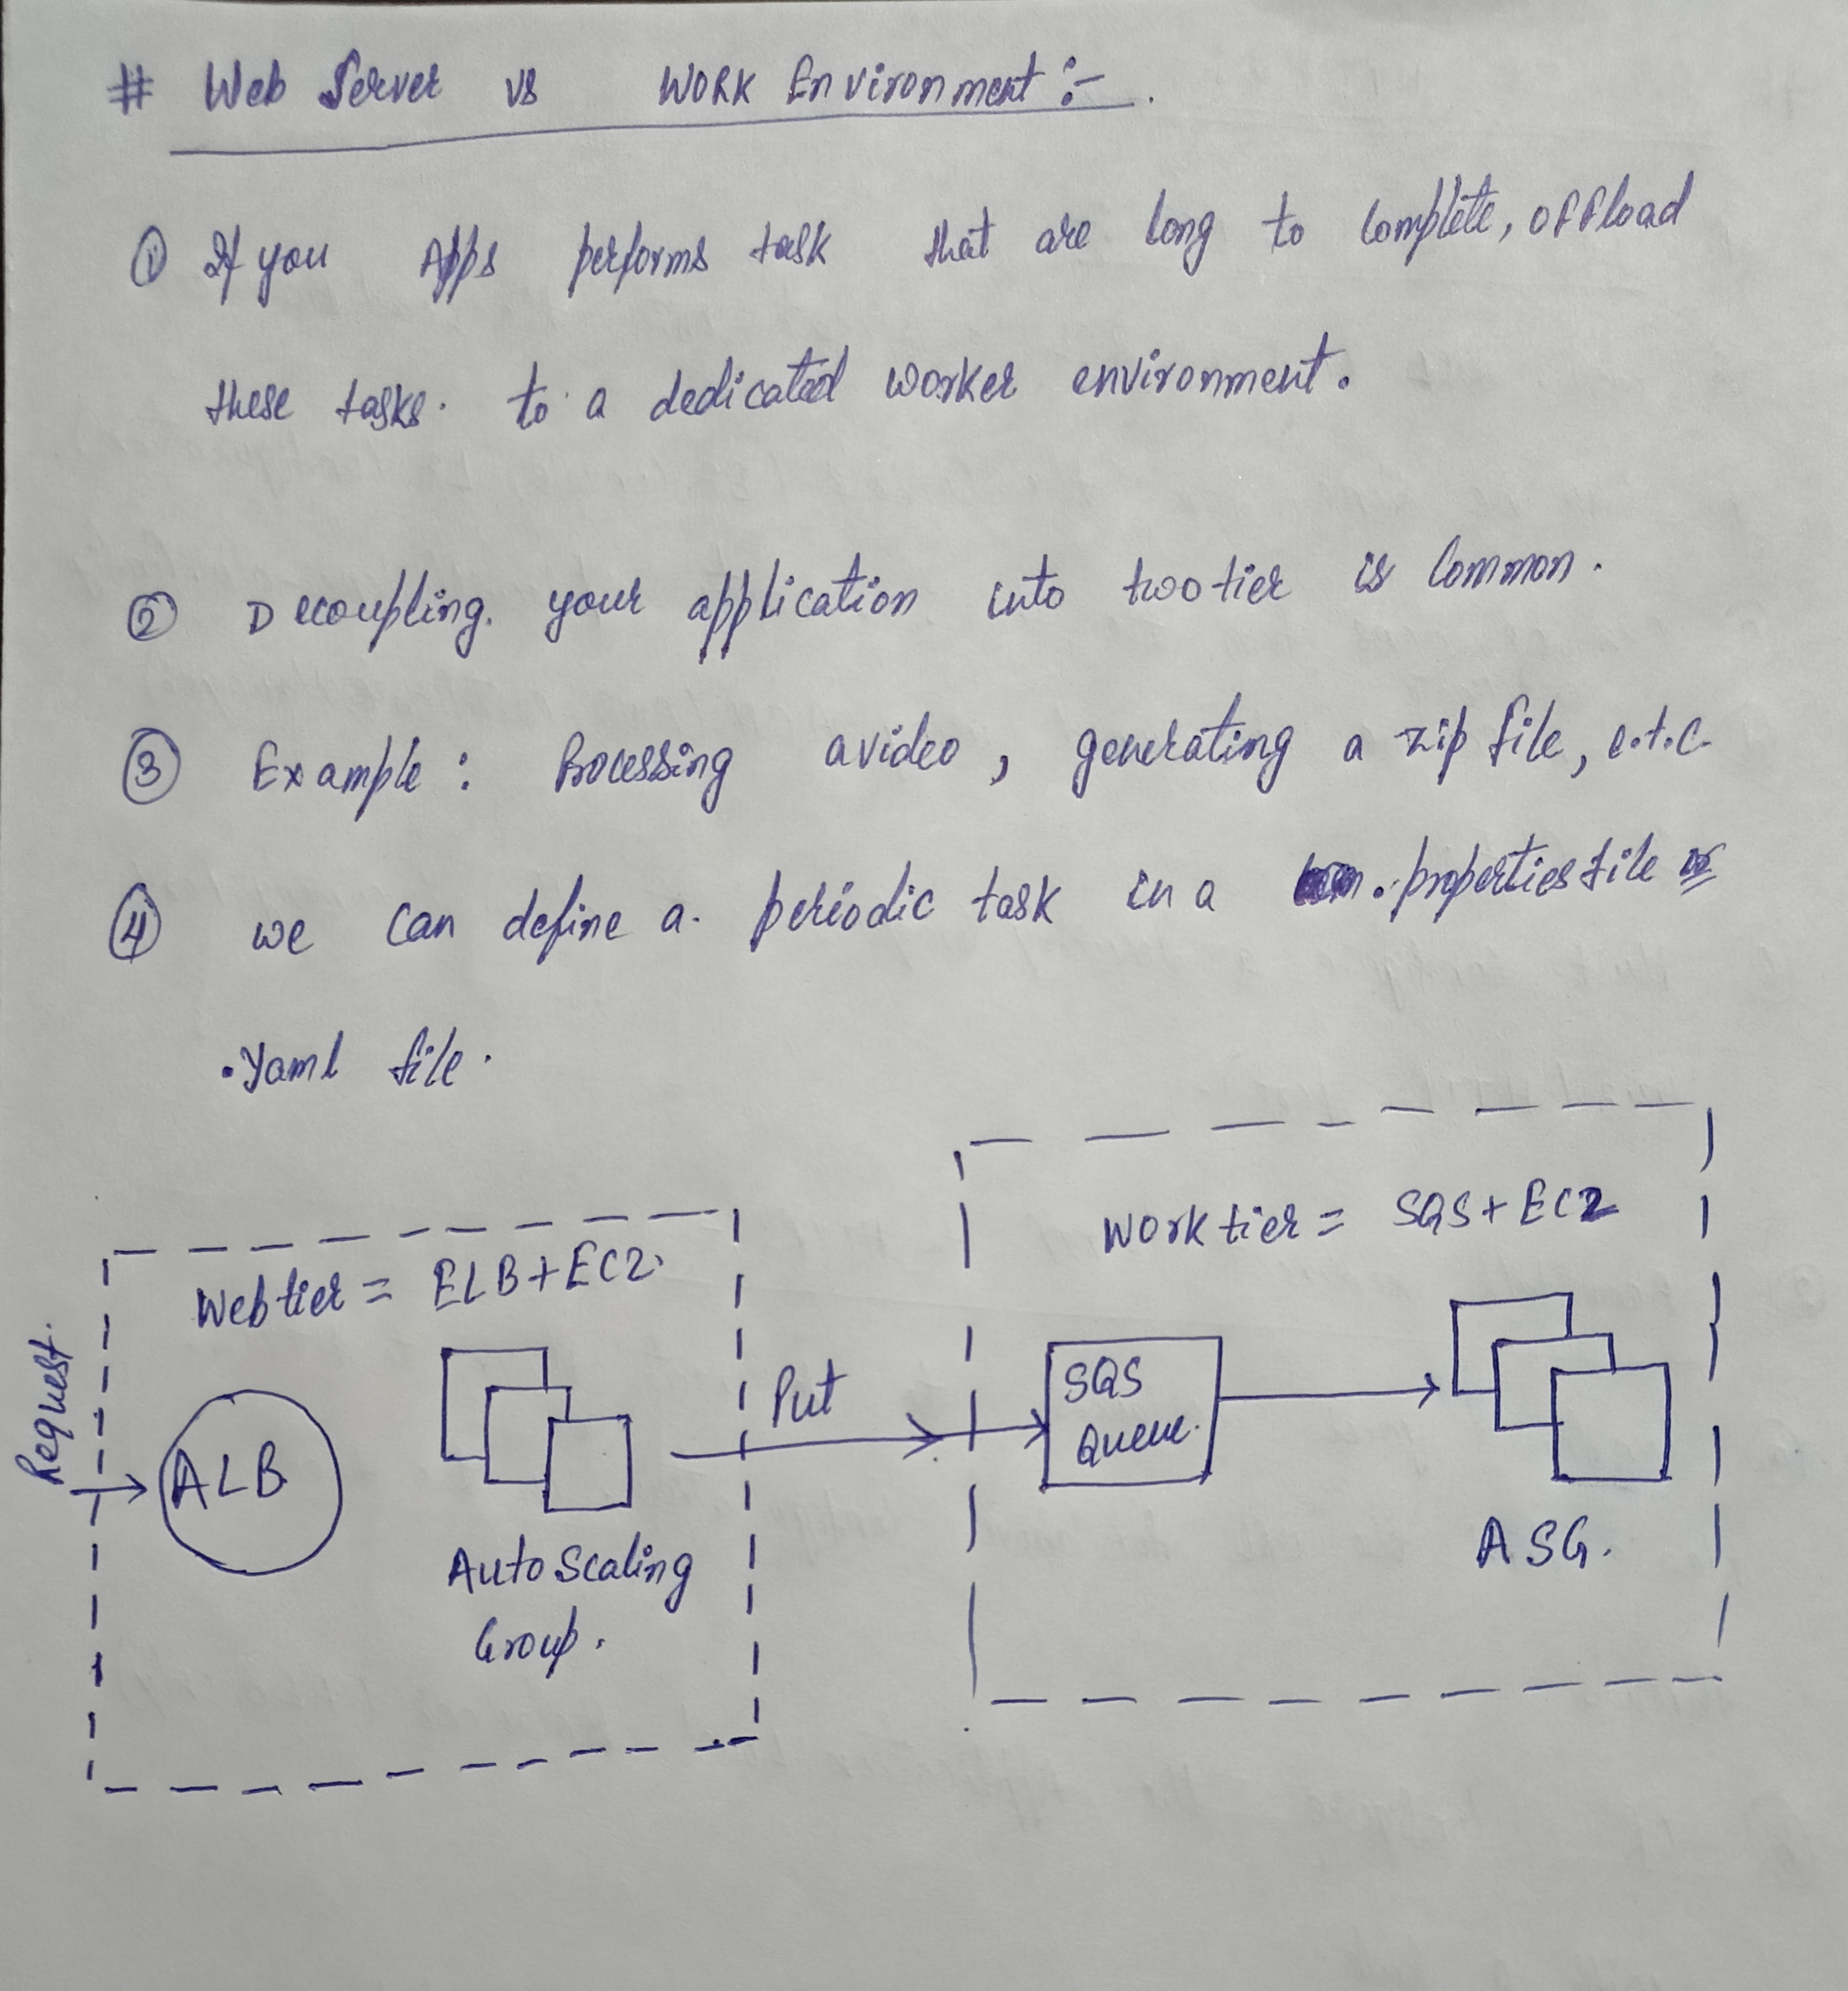 # Web Server vs WORK Environment :-
① If you Apps performs task that are long to complete, offload
these tasks. to a dedicated worker environment.
② Decoupling. your application into two tier is common.
③ Example : Processing a video, generating a zip file, e.t.c.
④ we can define a. periodic task in a .properties file or
.Yaml file.
Work tier = SQS + EC2
Web tier = ELB + EC2.
Request.
ALB
Put
SQS
Queue.
Auto Scaling
Group.
ASG.